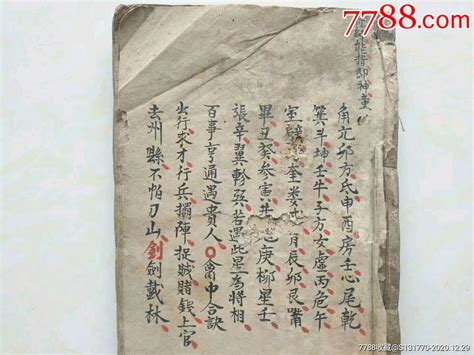 7788.com
即神童
角亢卯方氐申酉房壬心尾乾
箕斗坤壬牛子方女虛丙危午
室 奎婁戌胃辰卯艮嘴
畢丑癸參 井 庚柳星壬
張辛翼軫 若遇此星為將相
百事亨通遇貴人 中合訣
出行求才行兵擺陣捉賊賭錢上官
去州縣不怕刀山劍戟林
7788收藏@S131770-2020.12.29